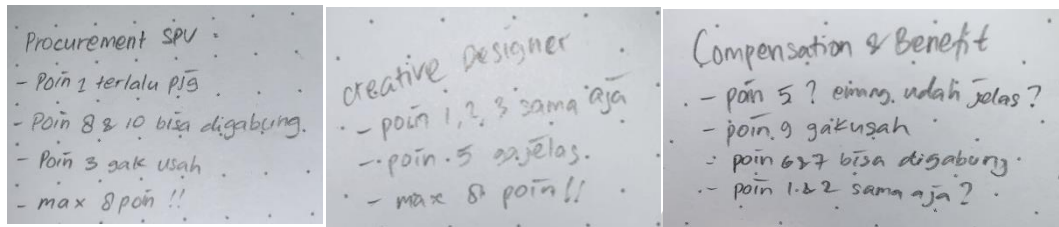 Procurement SPV
- Poin 1 terlalu pjg
- Poin 8 & 10 bisa digabung.
- Poin 3 gak usah
- max 8 poin !!
Creative Designer
- poin 1, 2, 3 sama aja
- poin 5 gajelas.
- max 8 poin!!
Compensation & Benefit
- poin 5 ? emang udah jelas?
- poin 9 gakusah
- poin 6&7 bisa digabung.
- poin 1 & 2 sama aja?